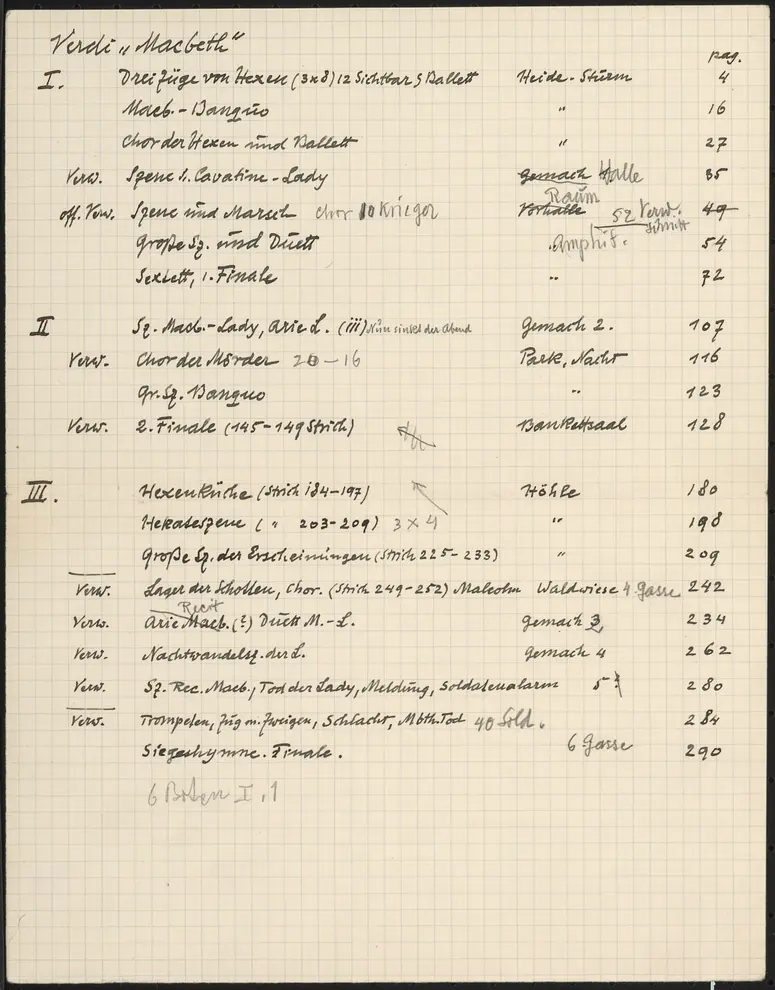 Verdi „Macbeth"
pag.
I. Drei Züge von Hexen (3x8) 12 Sichtbar 5 Ballett Heide-Sturm 4
Macb.-Banquo " 16
Chor der Hexen und Ballett " 27
Verw. Szene u. Cavatine-Lady Gemach Halle 35
Raum
off. Verw. Szene und Marsch Chor 10 Krieger Vorhalle 52 Verw. 49
Schnitt
Große Sz. und Duett "Amphit. 54
Sextett, 1. Finale " 72
II Sz. Macb.-Lady, Arie L. (iii) Nun sinkt der Abend Gemach 2. 107
Verw. Chor der Mörder 20-16 Park, Nacht 116
Gr. Sz. Banquo " 123
Verw. 2. Finale (145-149 Strich) Bankettsaal 128
III. Hexenküche (Strich 184-197) Höhle 180
Hekateszene ( " 203-209) 3x4 " 198
Große Sz. der Erscheinungen (Strich 225-233) " 209
Verw. Lager der Schotten, Chor. (Strich 249-252) Malcolm Waldwiese 4. Gasse 242
Recit
Verw. Arie Macb. (?) Duett M.-L. Gemach 3 234
Verw. Nachtwandelsz. der L. Gemach 4 262
Verw. Sz. Rec. Macb., Tod der Lady, Meldung, Soldatenalarm 5 280
Verw. Trompeten, Zug m. Zweigen, Schlacht, Mbth. Tod 40 Sold. 284
6 Gasse
Siegeshymne. Finale. 290
6 Boten I, 1